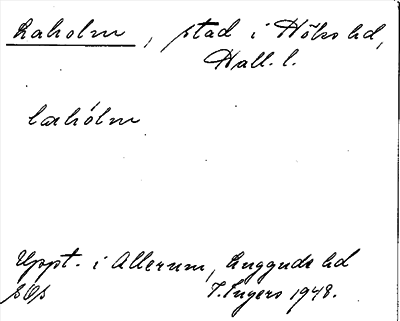 Laholm, stad i Höks hd,
Hall. l.
laxhólm
Uppt. i Allerum, Luggude hd
SOs I. Ingers 1948.